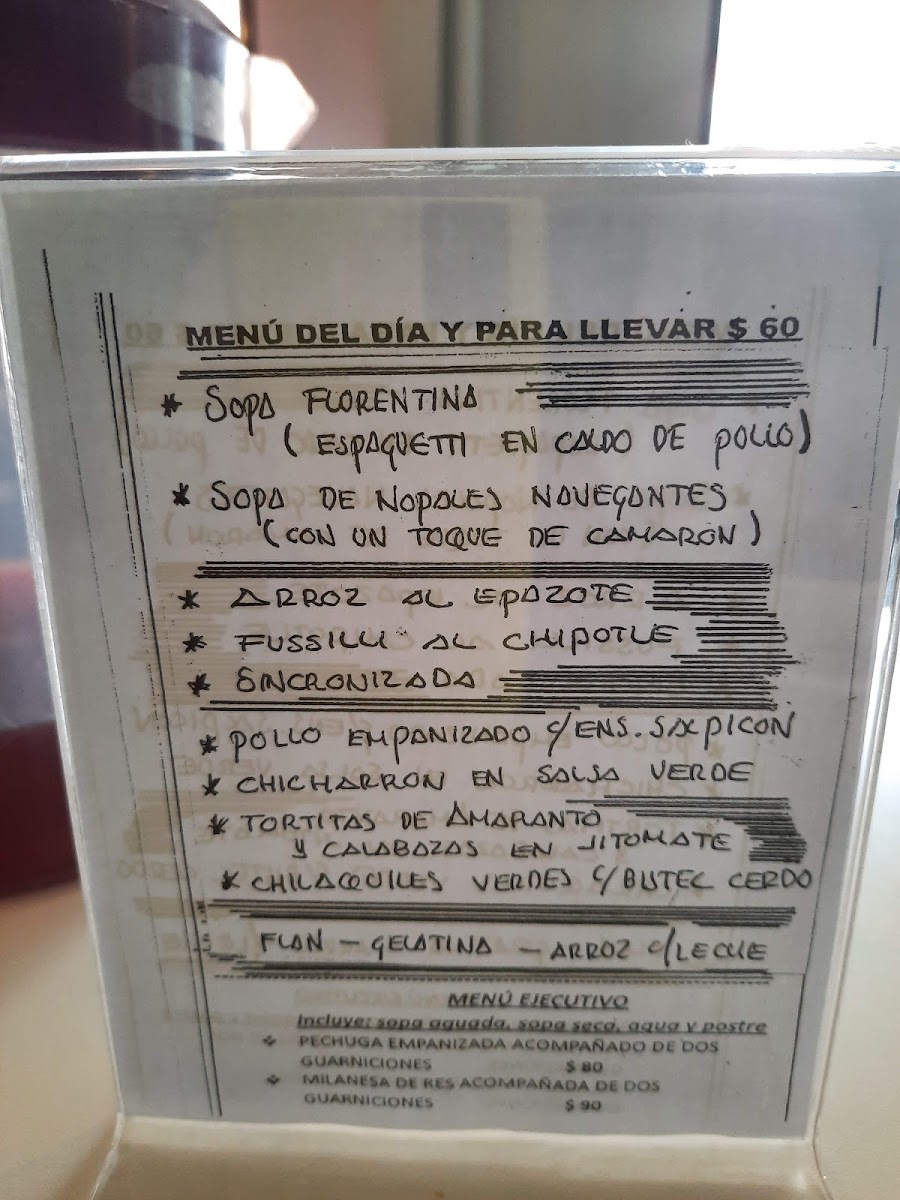 MENÚ DEL DÍA Y PARA LLEVAR $ 60
* SOPA FLORENTINA
( ESPAGUETTI EN CALDO DE POLLO)
* SOPA DE NOPALES NAVEGANTES
(CON UN TOQUE DE CAMARÓN)
* ARROZ AL EPAZOTE
* FUSSILLI AL CHIPOTLE
* SINCRONIZADA
* POLLO EMPANIZADO C/ENS. SALPICON
* CHICHARRON EN SALSA VERDE
* TORTITAS DE AMARANTO
Y CALABAZAS EN JITOMATE
* CHILAQUILES VERDES C/BISTEC CERDO
FLAN - GELATINA - ARROZ C/LECHE
MENÚ EJECUTIVO
Incluye: sopa aguada, sopa seca, agua y postre
❖ PECHUGA EMPANIZADA ACOMPAÑADO DE DOS
GUARNICIONES $ 80
❖ MILANESA DE RES ACOMPAÑADA DE DOS
GUARNICIONES $ 90